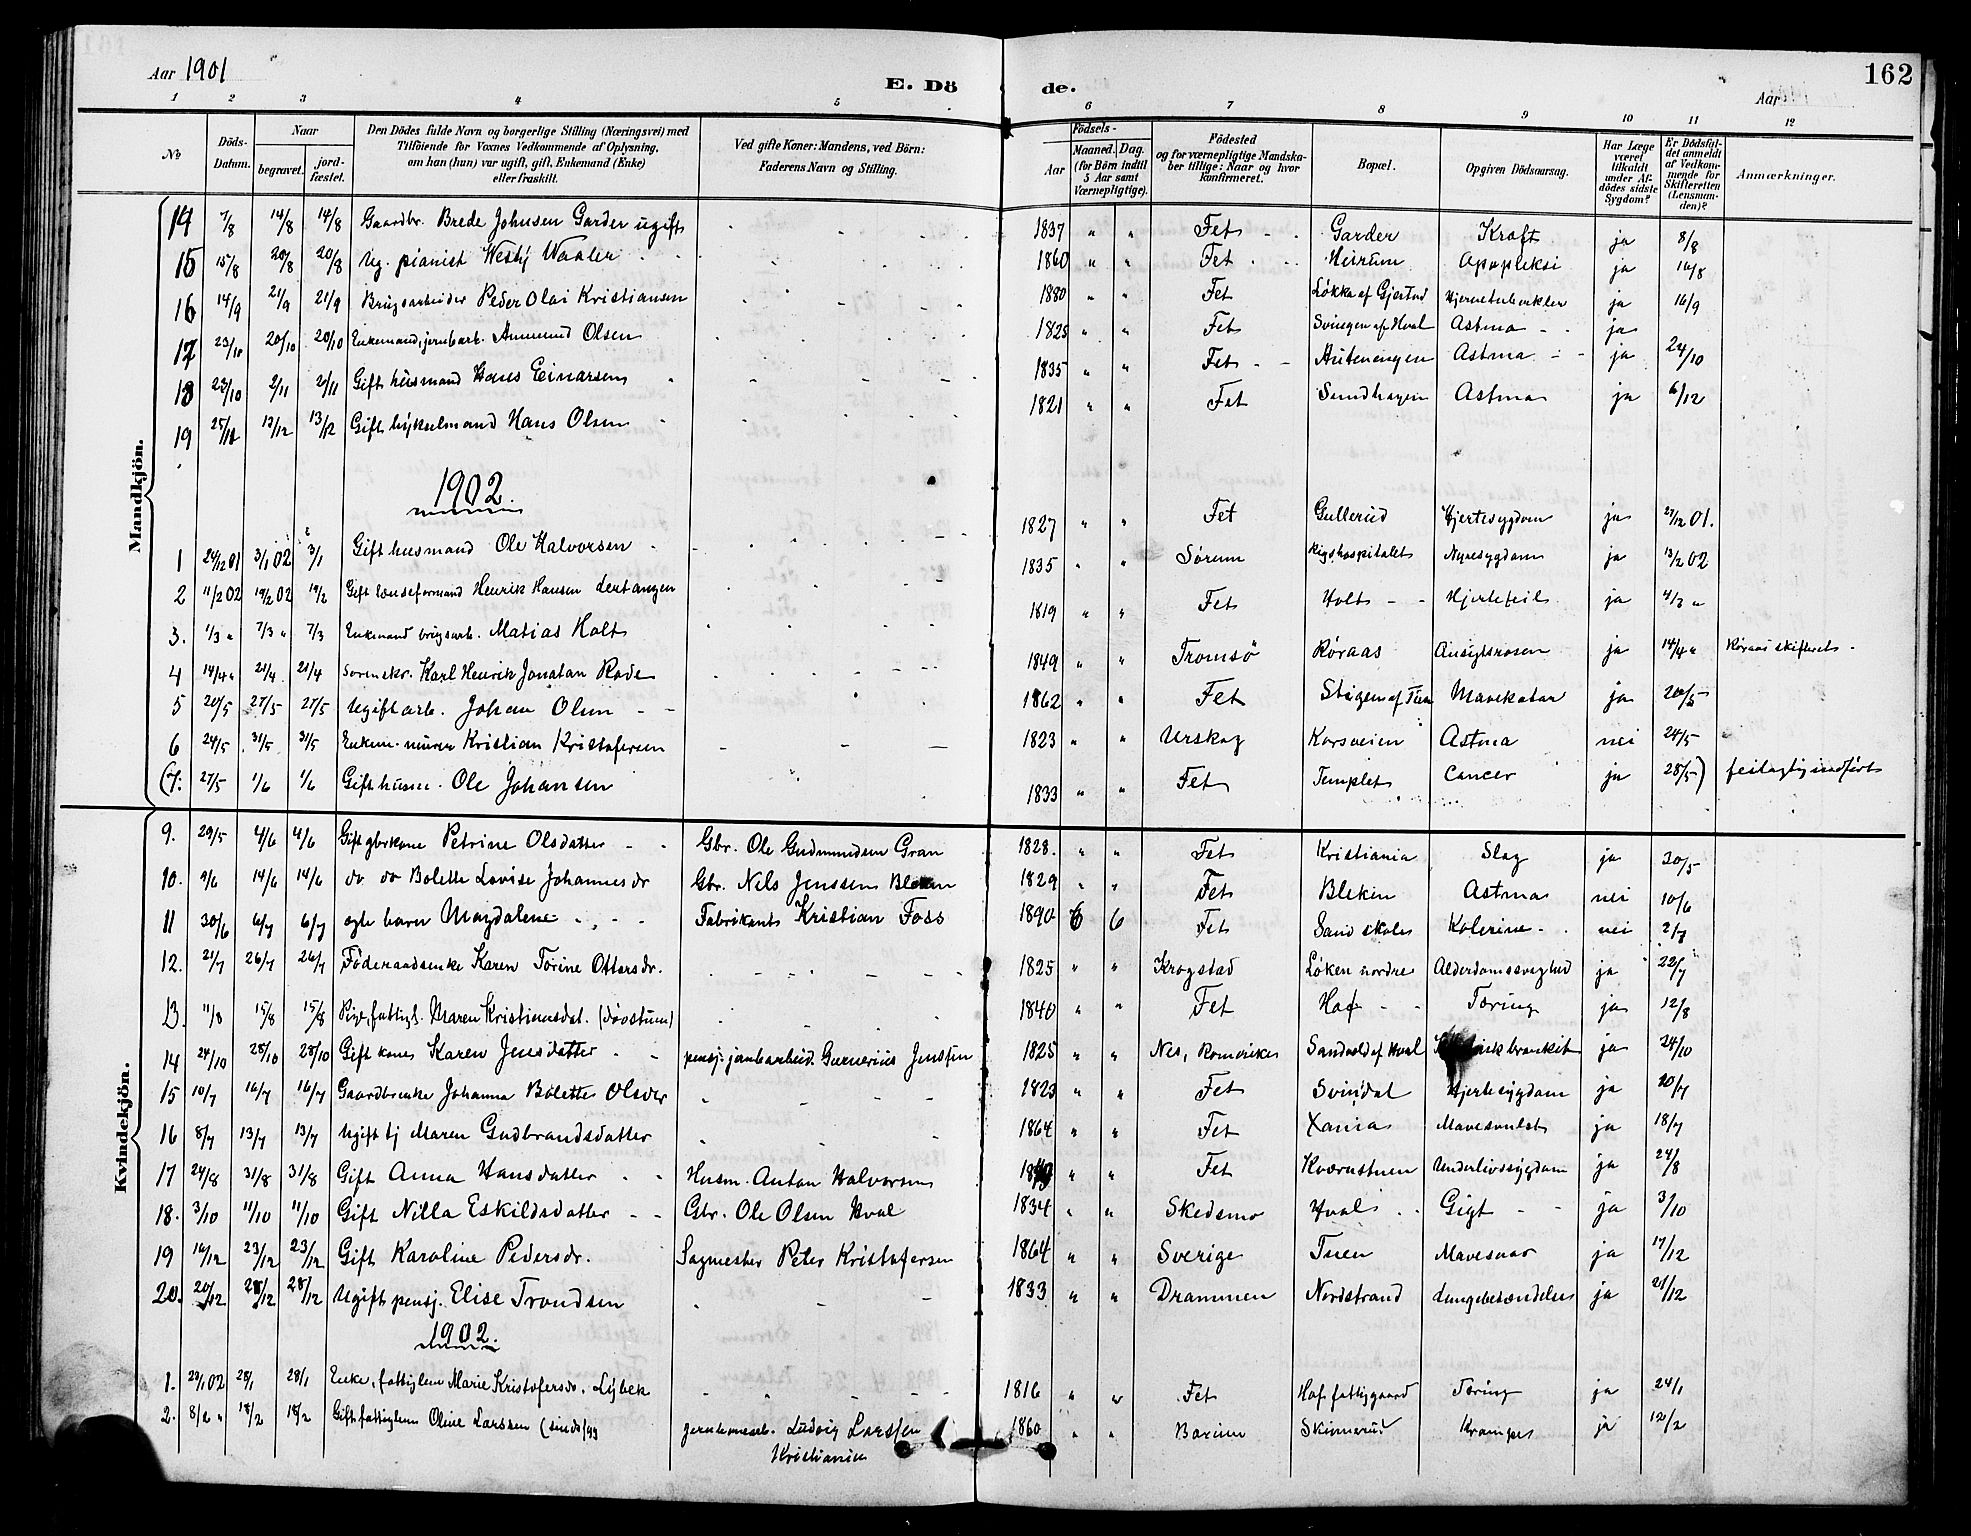 Aar 1901
E. Dö de.
Aar
162
1 2 3 4 5 6 7 8 9 10 11 12
No
Döds-Datum.
Naar begravet. jord-fæstet.
Den Dödes fulde Navn og borgerlige Stilling (Næringsvei) med
Tilföiende for Voxnes Vedkommende af Oplysning,
om han (hun) var ugift, gift, Enkemand (Enke)
eller fraskilt.
Ved gifte Koner: Mandens, ved Börn:
Faderens Navn og Stilling.
Födsels-
Aar Maaned. Dag.
(for Börn indtil 5 Aar samt Værnepligtige).
Födested
og for værnepligtige Mandska-
ber tillige: Naar og hvor
konfirmeret.
Bopæl.
Opgiven Dödsaarsag.
Har Læge været tilkaldt under Af-dödes sidste Sygdom?
Er Dödsfal-det anmeldt af Vedkom-mende for Skifteretten (Lensman-den)?
Anmærkninger.
Mandkjön.
14 7/8 14/8 14/8 Gaardbr. Brede Johnsen Garder ugift 1837 " " Fet Garder Kraft ja 8/8
15 15/8 20/8 20/8 Ug. pianist Westy Waaler 1860 " " Fet Heirum Apopleksi ja 16/8
16 14/9 21/9 21/9 Brugsarbeider Peder Olai Kristiansen 1880 " " Fet Løkka af Gjertud Hjernetuberkler ja 16/9
17 23/10 20/10 20/10 Enkemand, jernbarb. Ammund Olsen 1825 " " Fet Svingen af Hval Astma ja
18 23/10 2/11 2/11 Gift husmand Hans Einarsen 1835 " " Fet Astma ja 24/10
19 25/11 13/12 13/12 Gift Hans Olsen 1821 " " Fet Sundhagen Astma ja 6/12
1902.
1 24/12 01 3/1 02 3/1 Gift husmand Ole Halvorsen 1827 " " Fet Gullerud Hjertesygdom ja 27/12 01.
2 11/2 02 19/2 02 19/2 Gift lænseformand Henrik Hansen Lertangen 1835 " " Sørum Rigshospitalet Nyresygdom ja 13/2 02
3. 1/3 " 7/3 " 7/3 Enkemand brugsarb. Matias Holt 1819 " " Fet Holt Hjertefeil ja 4/3 "
4 14/4 " 21/4 21/4 Sorenskr. Karl Henrik Jonatan Rode 1849 " " Tromsö Røraas Ansigtsrosen ja 14/4 " Røraas skifteret
5 20/5 27/5 27/5 Ugift arb. Johan Olsen 1862 " " Fet Stigen af Tuen Mavekatar ja 20/5
6 24/5 31/5 31/5 Enkem. murer Kristian Kristofersen 1823 " " Urskog Korsveien Astma nei 24/5
(7. 27/5 1/6 1/6 Gift husm. Ole Johansen 1833 " " Fet Templet Cancer ja 28/5) feilagtig indført
Kvindekjön.
9. 29/5 4/6 4/6 Gift gbrkone Petrine Olsdatter Gbr. Ole Gudmundsen Gran 1828. " " Fet Kristiania Slag ja 30/5
10. 9/6 14/6 14/6 do. do Bolette Lovise Johannesdr Gbr. Nils Jenssen Bleken 1829 " " Fet Bleken Astma nei 10/6
11 30/6 6/7 6/7 ægte barn Magdalene Fabrikant Kristian Foss 1890 6 6 Fet Sand skole Kolerine nei 2/7
12. 21/7 26/7 26/7 Föderaadsenke Karen Torine Ottersdr. 1825 " " Krogstad Løken nordre Alderdomssvaghed ja 22/7
13. 11/8 15/8 15/8 Pige, fattigl. Maren Kristiansdat. (døvstum) 1840 " " Fet Hof Tæring ja 12/8
14 24/10 28/10 28/10 Gift kone Karen Jensdatter pensj. jernbarbeid. Gunerius Jenssen 1825 " " Nes, Romerike Sandvold af Hval ja 24/10
15 10/7 16/7 16/7 Gaardbrenke Johanna Bolette Olsdr 1823 " " Fet Svingdal Hjertesygdom ja 20/7
16 8/7 13/7 13/7 Ugift tj Maren Gudbrandsdatter 1864 " " Fet Xania Mavesvulst ja 18/7
17 24/8 31/8 31/8 Gift Anna Hansdatter Husm. Anton Halvorsen " " Fet Kværnstuen Underlivssygdom ja 24/8
18. 3/10 11/10 11/10 Gift Nilla Eskildsdatter Gbr. Ole Olsen Hval 1834 " " Skedsmo Hval Gigt ja 3/10
19 16/12 23/12 23/12 Gift Karoline Pedersdr. Sagmester Peter Kristofersen 1864 " " Sverige Tuen Mavesaar ja 17/12
20. 20/12 28/12 28/12 Ugift pensj. Elise Trondsen 1833 " " Drammen Nordstrand Lungebetændelse ja 21/12
1902.
1. 23/1 02 28/1 28/1 Enke, fattiglem Marie Kristofersdr. Lybek 1816 " " Fet Hof fattiggaard Tæring ja 24/1
2. 8/2 " 18/2 18/2 Gift fattiglem Oline Larssen (sindssyg Ludvig Larssen 1860 " " Bærum Krampe ja 12/2
Kristiania